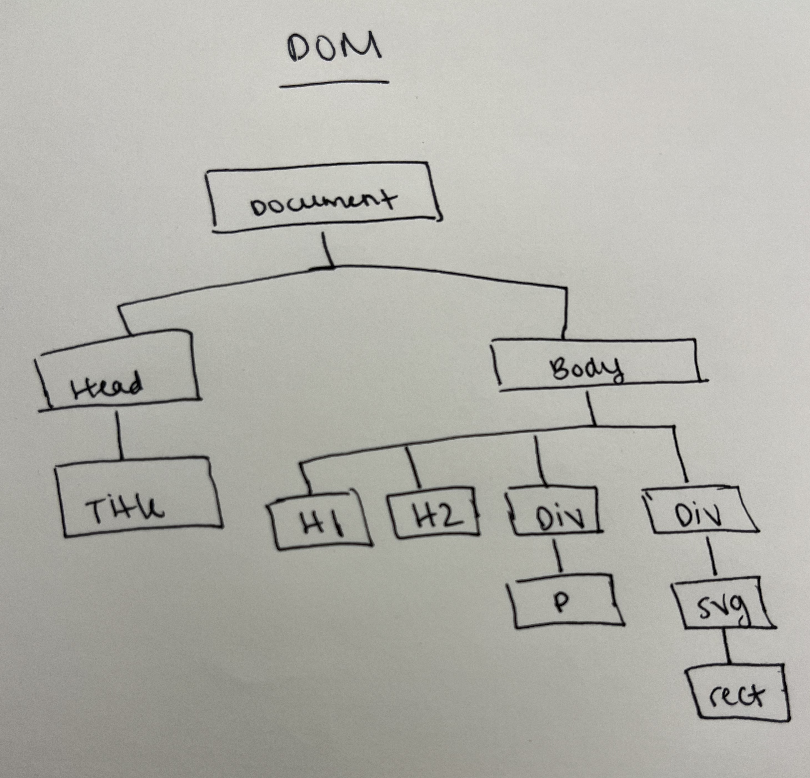 DOM
Document
Head
Body
Title
H1
H2
Div
Div
P
svg
rect